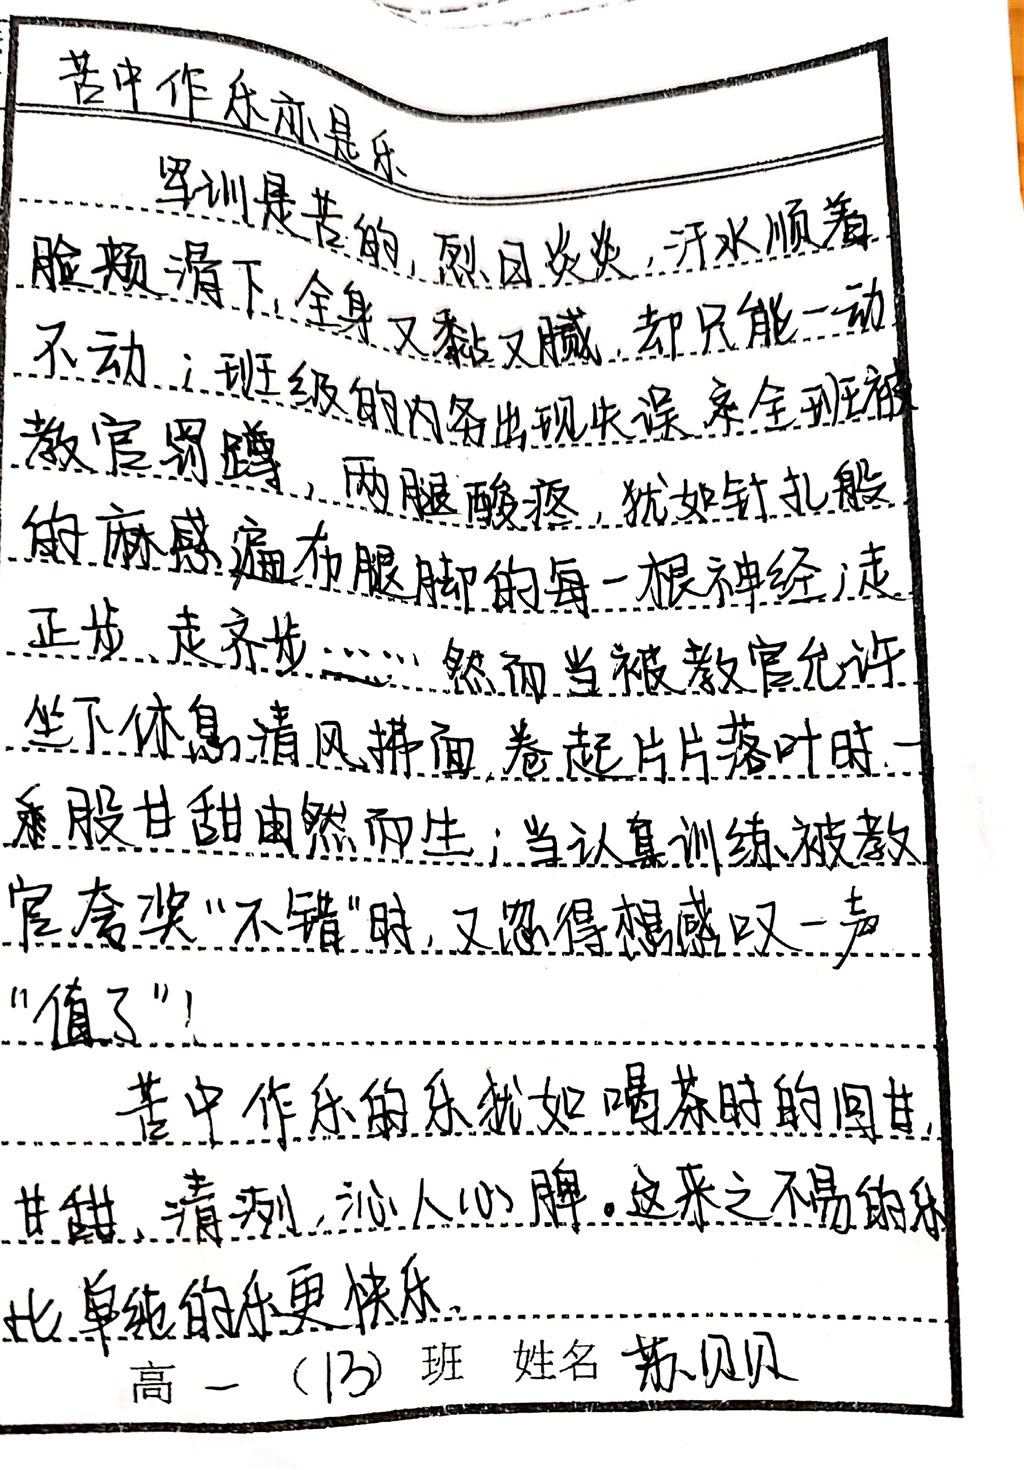 苦中作乐亦是乐
军训是苦的，烈日炎炎，汗水顺着
脸颊滑下，全身又黏又臟，却只能一动
不动；班级的内务出现失误，全班被
教官罚蹲，两腿酸疼，犹如针扎般
的麻感遍布腿脚的每一根神经；走
正步、走齐步……然而当被教官允许
坐下休息，清风拂面，卷起片片落叶时，一
股甘甜由然而生；当认真训练被教
官夸奖“不错”时，又忽得想感叹一声
“值了”！
苦中作乐的乐犹如喝茶时的回甘，
甘甜、清冽，沁人心脾。这来之不易的乐
比单纯的乐更快乐。
高一（13）班 姓名 苏贝贝